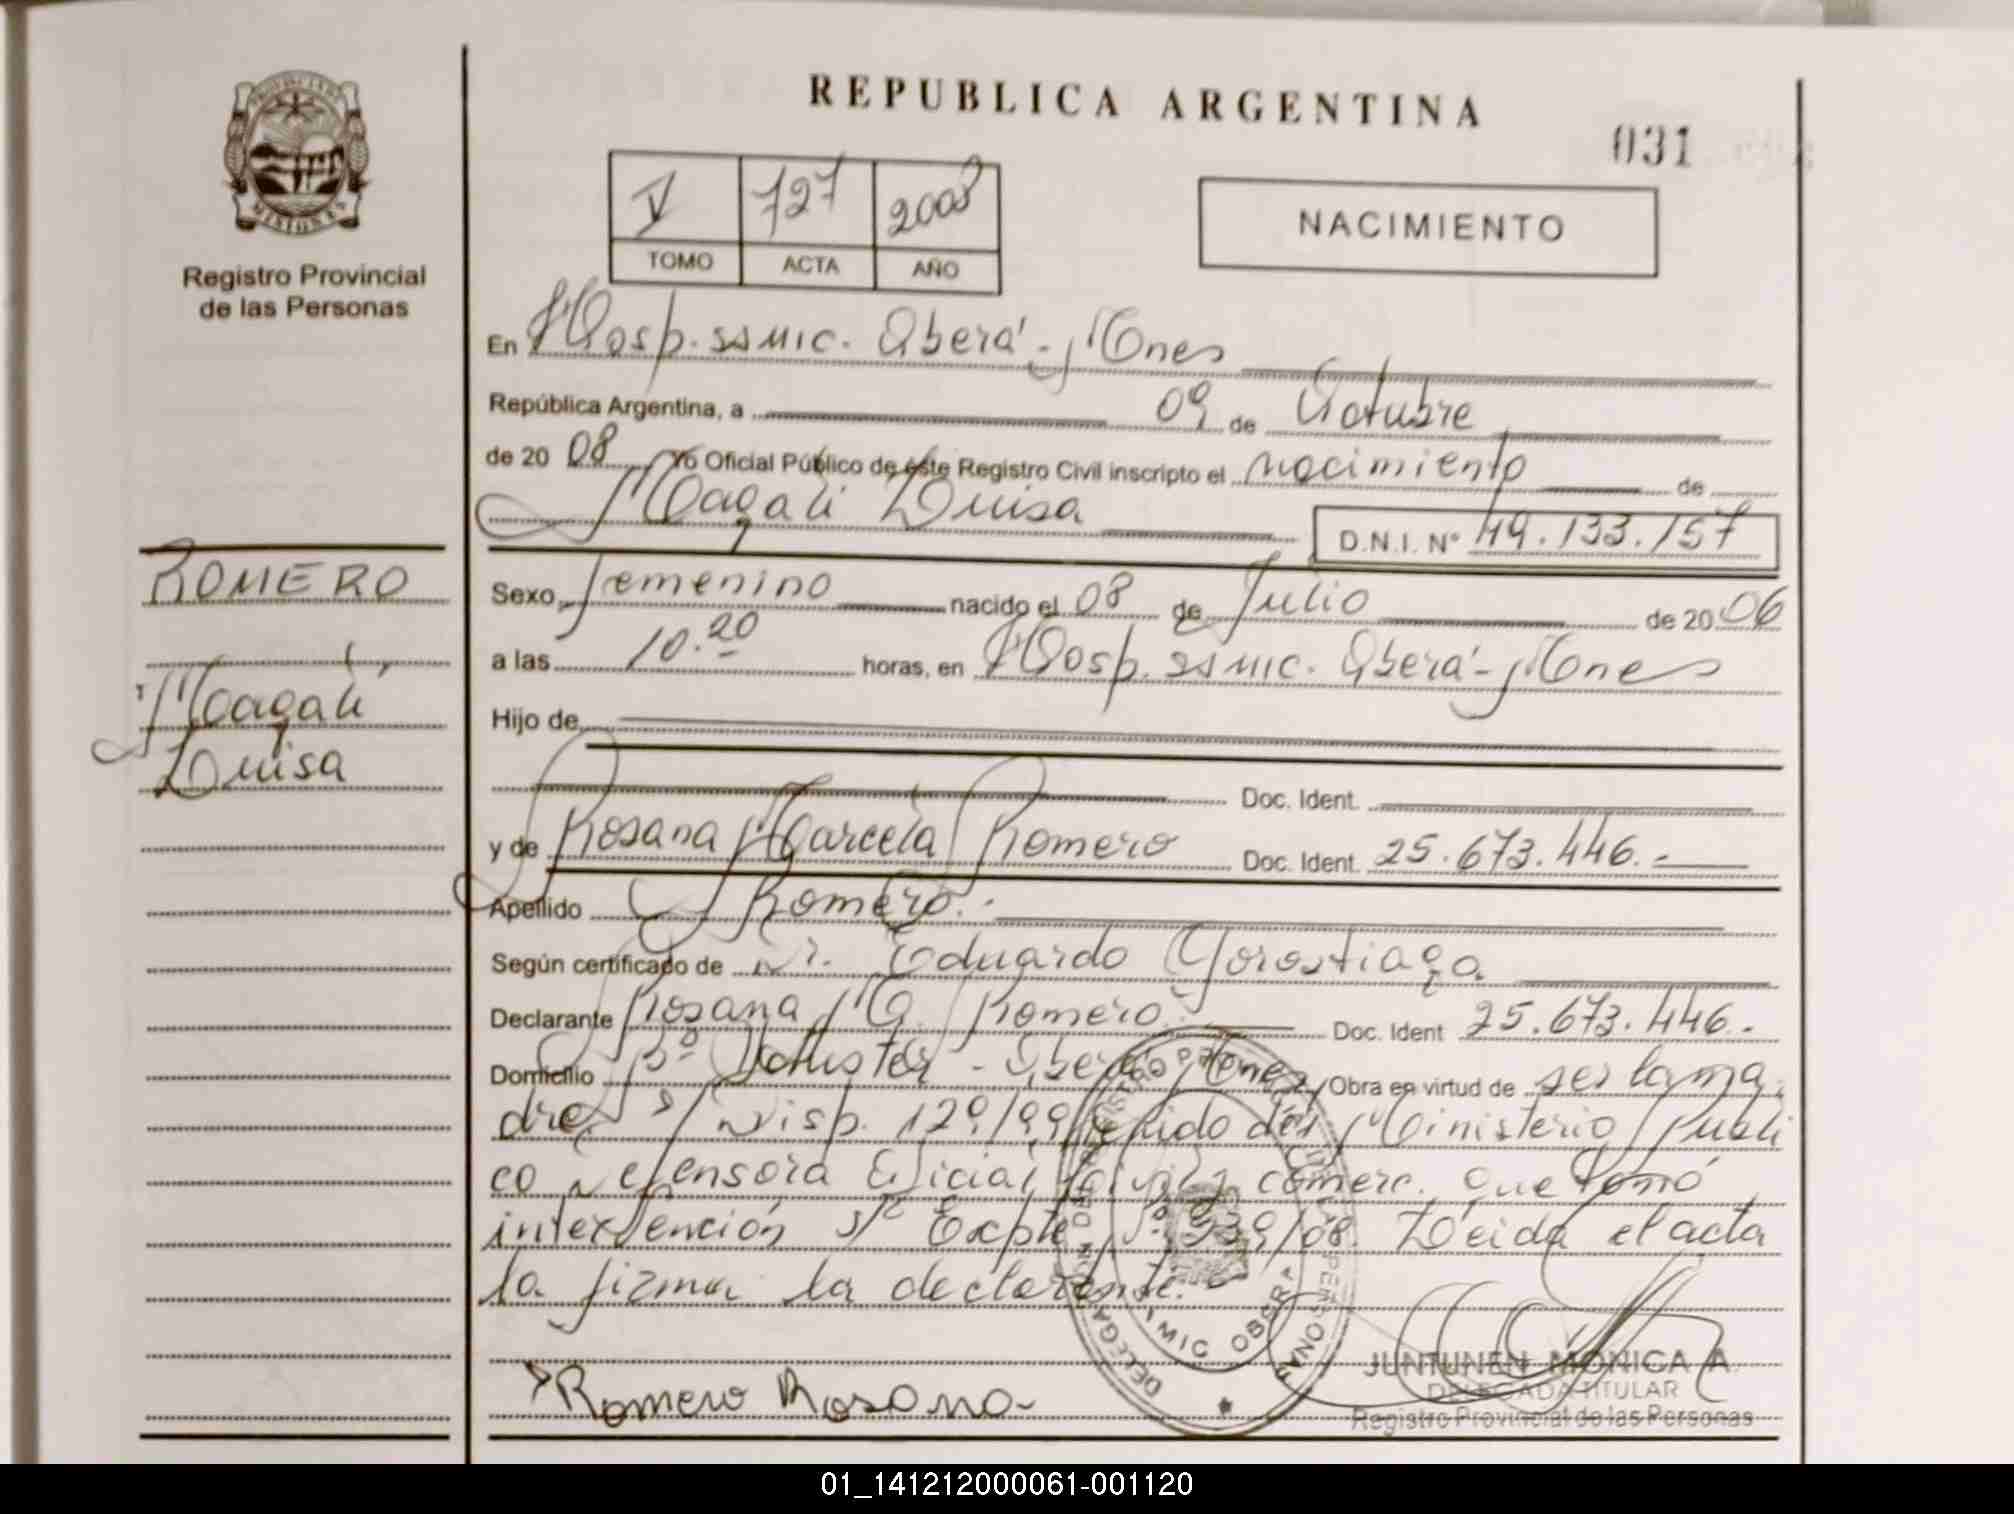 REPUBLICA ARGENTINA
031
PROVINCIA DE MISIONES
Registro Provincial
de las Personas
V 727 2008
TOMO ACTA AÑO
NACIMIENTO
En Hosp. SSMIC. Oberá - Mnes
República Argentina, a 09 de Octubre
de 20 08 Yo Oficial Público de éste Registro Civil inscripto el nacimiento de
Magali Luisa D.N.I. Nº 49.133.157
ROMERO
Magali
Luisa
Sexo femenino nacido el 08 de Julio de 20 06
a las 10.20 horas, en Hosp. SSMIC. Oberá - Mnes
Hijo de
Doc. Ident.
y de Rosana Marcela Romero Doc. Ident. 25.673.446.-
Apellido Romero.-
Según certificado de Dr. Eduardo Gorostiaga
Declarante Rosana M. Romero Doc. Ident 25.673.446.-
Domicilio Bº - Oberá Mnes Obra en virtud de ser la ma
dre. S/ Disp. 129/99 del Ministerio Publi
co Defensora Oficial Civil y comerc. que tomó
intervención s/ Expte Nº 939/08. Leida el acta
la firma la declarante.-
Romero Rosana
DELEGACION DEL REGISTRO PROVINCIAL DE LAS PERSONAS
SSMIC OBERA
JUNTUNEN MONICA A.
DELEGADA TITULAR
Registro Provincial de las Personas
01_141212000061-001120